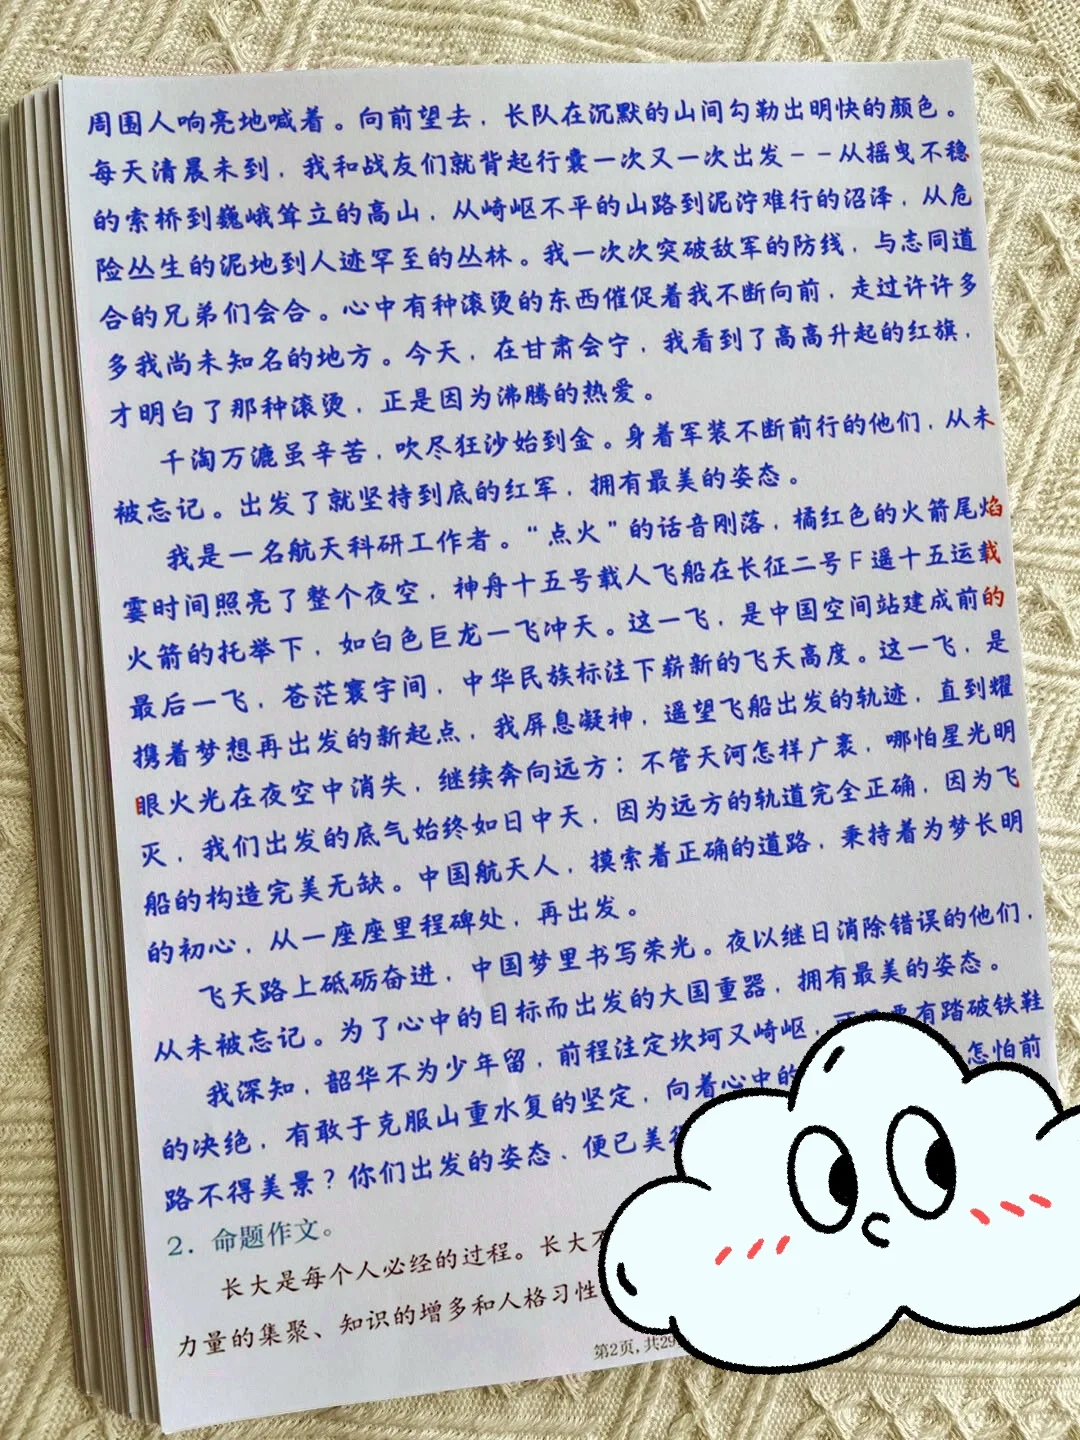 周围人响亮地喊着。向前望去，长队在沉默的山间勾勒出明快的颜色。
每天清晨未到，我和战友们就背起行囊一次又一次出发--从摇曳不稳
的索桥到巍峨耸立的高山，从崎岖不平的山路到泥泞难行的沼泽，从危
险丛生的泥地到人迹罕至的丛林。我一次次突破敌军的防线，与志同道
合的兄弟们会合。心中有种滚烫的东西催促着我不断向前，走过许许多
多我尚未知名的地方。今天，在甘肃会宁，我看到了高高升起的红旗，
才明白了那种滚烫，正是因为沸腾的热爱。
千淘万漉虽辛苦，吹尽狂沙始到金。身着军装不断前行的他们，从未
被忘记。出发了就坚持到底的红军，拥有最美的姿态。
我是一名航天科研工作者。“点火”的话音刚落，橘红色的火箭尾焰
霎时间照亮了整个夜空，神舟十五号载人飞船在长征二号F遥十五运载
火箭的托举下，如白色巨龙一飞冲天。这一飞，是中国空间站建成前的
最后一飞，苍茫寰宇间，中华民族标注下崭新的飞天高度。这一飞，是
携着梦想再出发的新起点，我屏息凝神，遥望飞船出发的轨迹，直到耀
眼火光在夜空中消失，继续奔向远方：不管天河怎样广袤，哪怕星光明
灭，我们出发的底气始终如日中天，因为远方的轨道完全正确，因为飞
船的构造完美无缺。中国航天人，摸索着正确的道路，秉持着为梦长明
的初心，从一座座里程碑处，再出发。
飞天路上砥砺奋进，中国梦里书写荣光。夜以继日消除错误的他们，
从未被忘记。为了心中的目标而出发的大国重器，拥有最美的姿态。
我深知，韶华不为少年留，前程注定坎坷又崎岖，有踏破铁鞋
的决绝，有敢于克服山重水复的坚定，向着心中的怎怕前
路不得美景？你们出发的姿态，便已美
2. 命题作文。
长大是每个人必经的过程。长大
力量的集聚、知识的增多和人格习性
第2页，共29